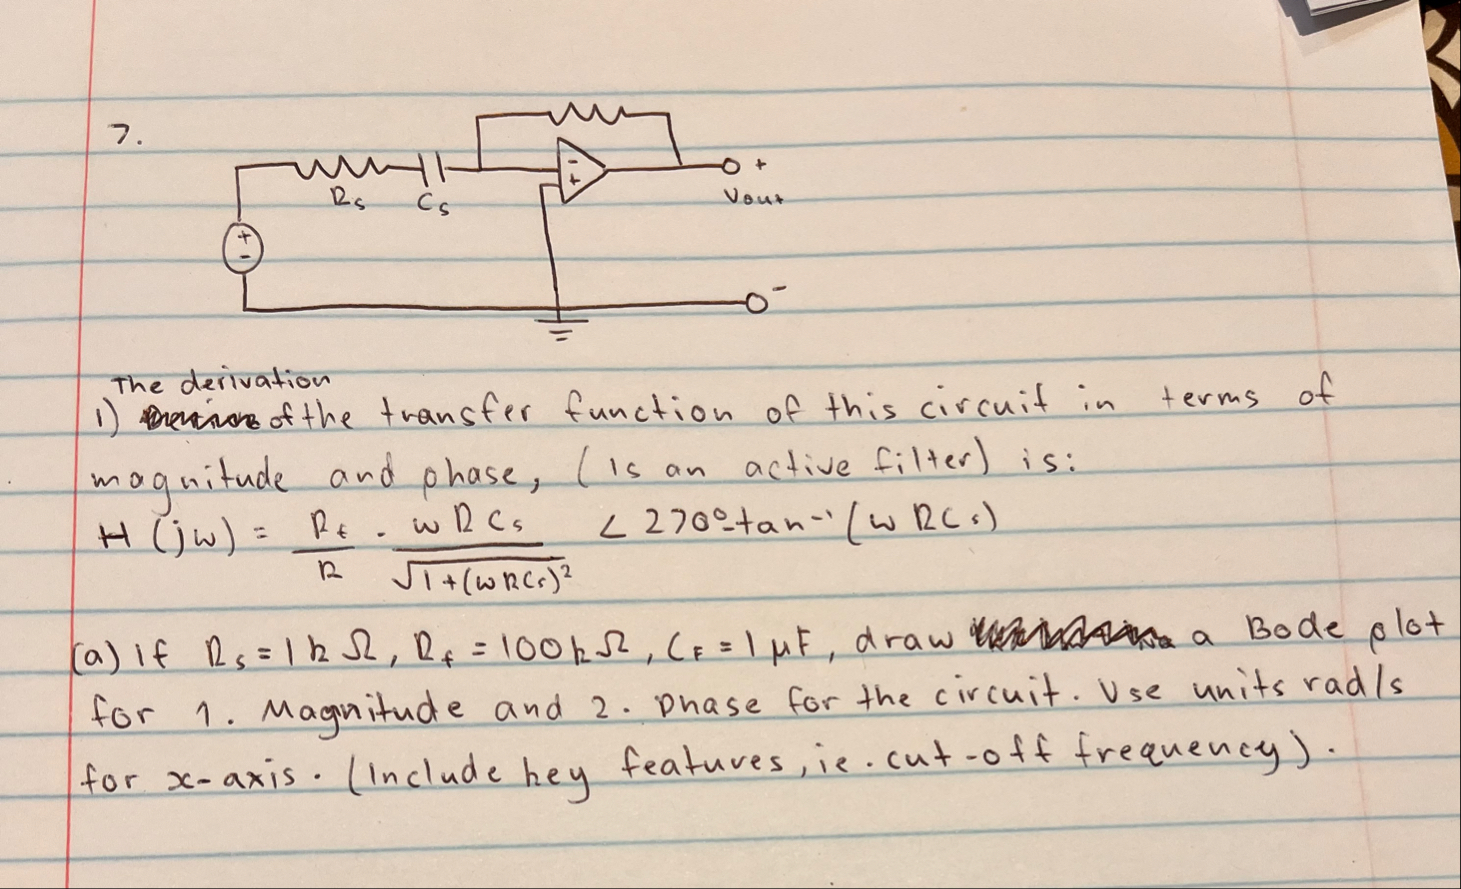 7.
- +
Rs Cs Vout
+
-
-
The derivation
1) of the transfer function of this circuit in terms of
magnitude and phase, (is an active filter) is:
H (jw) = Rf/R · wRCs/√1+(wRCs)² ∠270°-tan⁻¹(wRCs)
(a) If Rs = 1kΩ, Rf = 100kΩ, CF = 1μF, draw a Bode plot
for 1. Magnitude and 2. Phase for the circuit. Use units rad/s
for x-axis. (Include key features, ie. cut-off frequency).